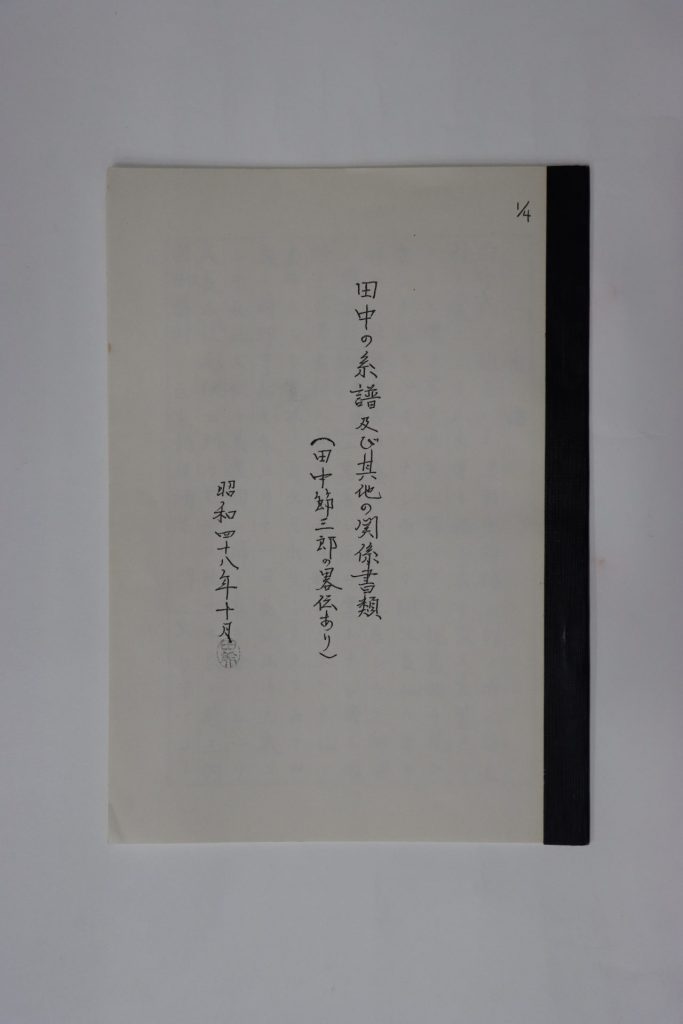 1/4
田中の系譜及び其他の関係書類
(田中節三郎の畧伝あり)
昭和四十八年十月